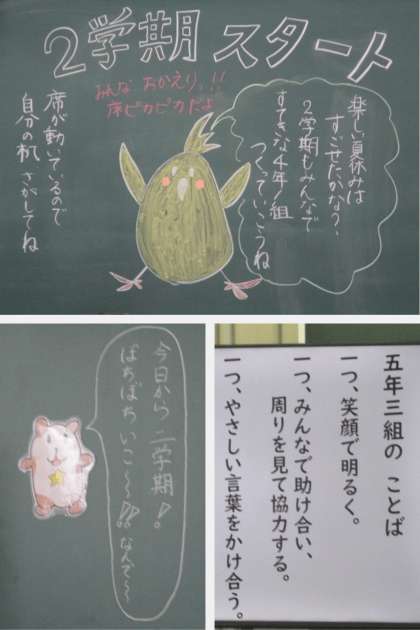 2学期 スタート
みんな おかえり!!
床ピカピカだよ
楽しい夏休みは
すごせたかなう。
2学期もみんなで
すてきな4年1組
つくっていこうね
席が動いているので
自分の机 さがしてね
今日から 二学期!
ぼちぼち いこ〜〜!! なんで〜〜
五年三組の ことば
一つ、笑顔で明るく。
一つ、みんなで助け合い、
周りを見て協力する。
一つ、やさしい言葉をかけ合う。